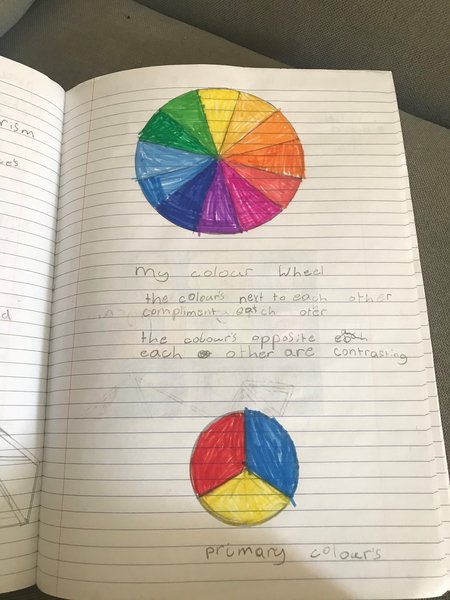 rism
My colour Wheel
the colour's next to each other
compliment eatch oter
the colour's opposite
each other are contrasting
primary colour's